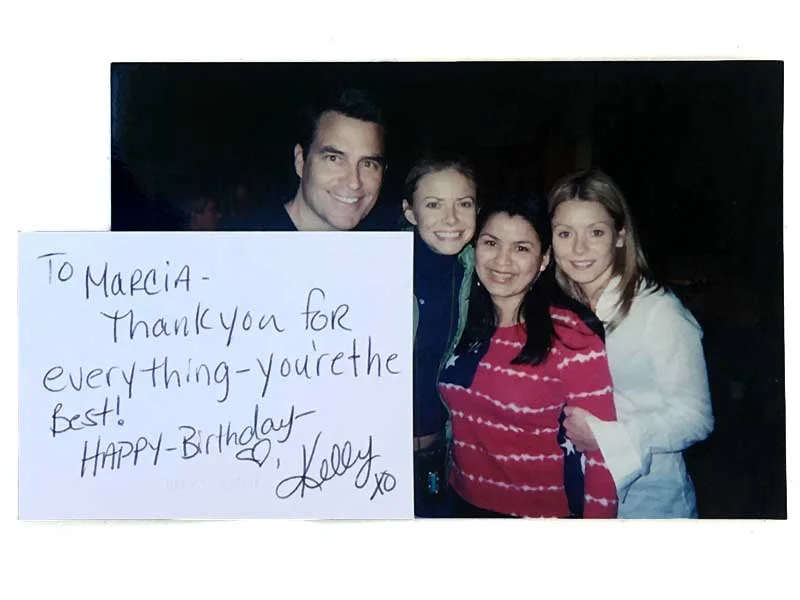 To MARCIA-
Thank you for
everything-you're the
Best!
HAPPY-Birthday-
♡, Kelly
xo